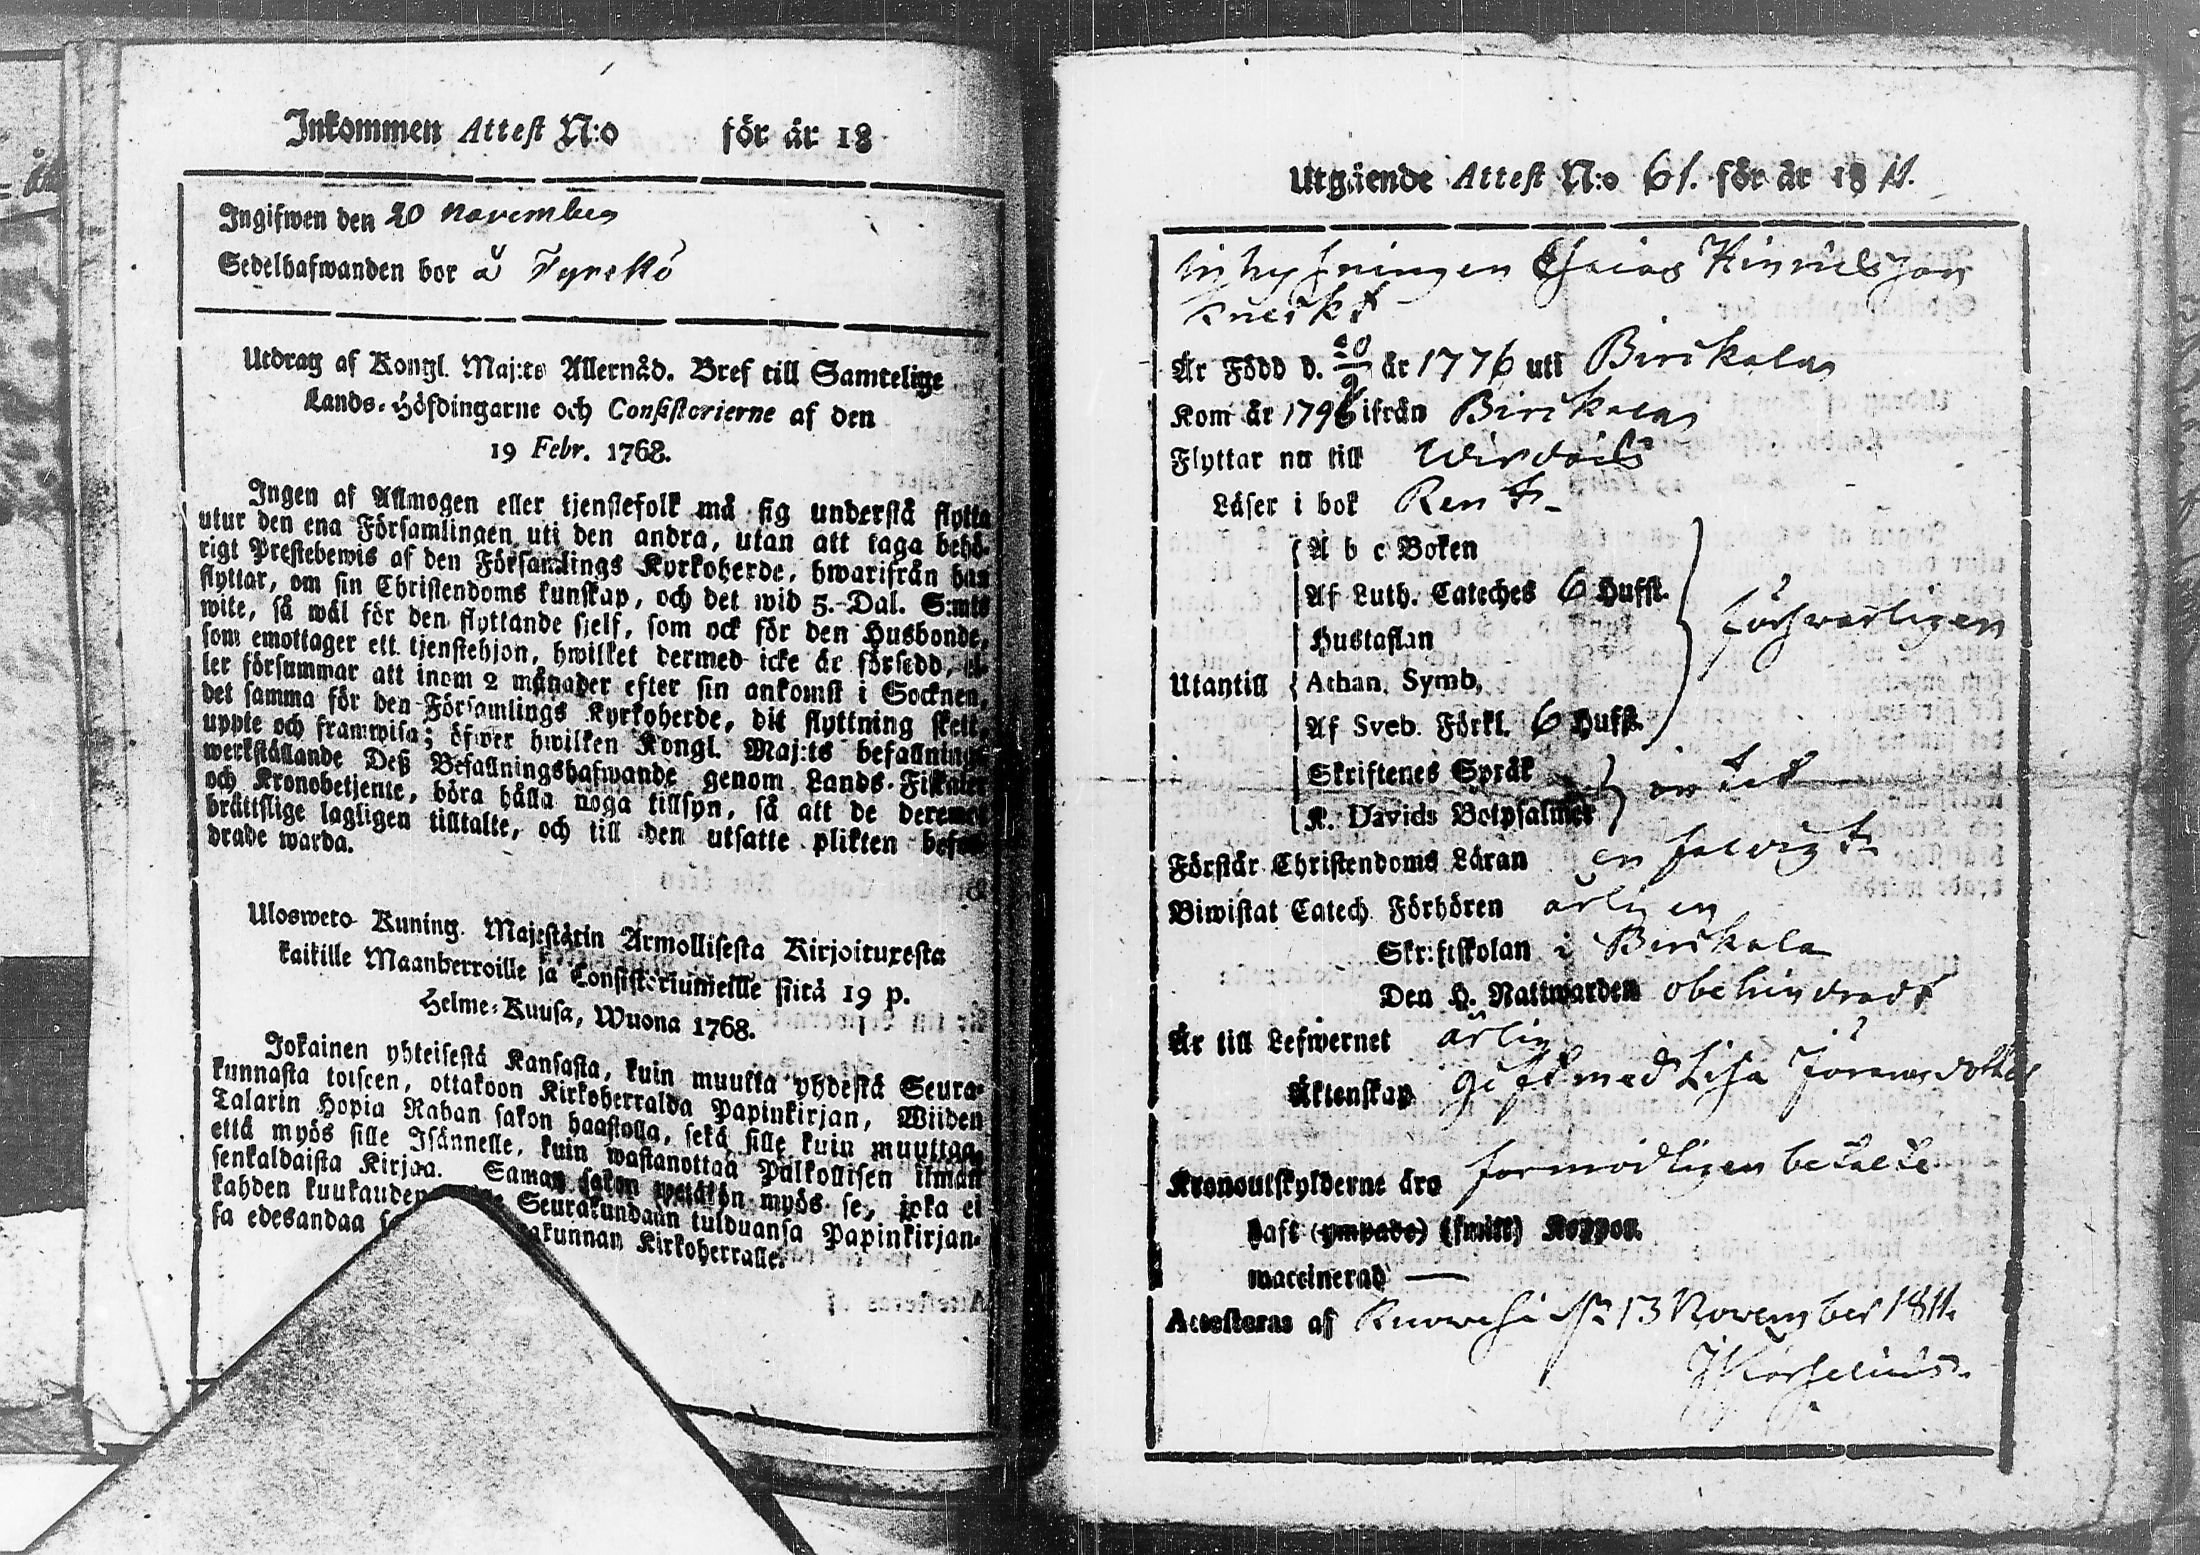 Inkommen Attest N:o för år 18
Ingifwen den 20 november
Sedelhafwanden bor å Tyrekö
Utdrag af Kongl. Maj:ts Allernåd. Bref till Samtelige
Lands-Höfdingarne och Consistorierne af den
19 Febr. 1768.
Ingen af Allmogen eller tjenstefolk må sig understå flytta
utur den ena Församlingen uti den andra, utan att taga behö-
rigt Prestebewis af den Församlings Kyrkoherde, hwarifrån han
flyttar, om sin Christendoms kunskap, och det wid 5. Dal. S:mts
wite, så wäl för den flyttande sjelf, som ock för den Husbonde,
som emottager ett tjenstehjon, hwilket dermed icke är försedd, el-
ler försummar att inom 2 månader efter sin ankomst i Socknen,
det samma för den Församlings Kyrkoherde, dit flyttning skett,
uppte och framwisa; öfwer hwilken Kongl. Maj:ts befallnings
werkställande Deß Befallningshafwande genom Lands-Fiskaler
och Kronobetjente, böra hålla noga tillsyn, så att de deremot
bråttslige lagligen tilltalte, och till den utsatte plikten befor-
drade warda.
Ulosweto Kuning. Majestätin Armollisesta Kirjoituxesta
kaikille Maanherroille ja Consistoriumeille siitä 19 p.
Helme-Kuusa, Wuona 1768.
Jokainen yhteisestä Kansasta, kuin muutta yhdestä Seura-
kunnasta toiseen, ottakoon Kirkoherralda Papinkirjan, Wiiden
Talarin Hopia Rahan sakon haastolla, sekä sille kuin muuttaa,
että myös sille Isännelle, kuin wastanottaa Palkollisen ilman
senkaldaista Kirjaa. Saman sakon wetäkön myös se, joka ei
kahden kuukauden Seurakundaan tulduansa Papinkirjan-
sa edesandaa akunnan Kirkoherralle.
Utgående Attest N:o 61. för år 1811.
Inhysningen Esaias Hinricsson
Kneckt
Är Född d. 20/9 år 1776 uti Birckala
Kom år 1796 ifrån Birckala
Flyttar nu till Wirdois
Läser i bok Rent
A b c Boken
Af Luth. Cateches 6 Hufst.
Hustaflan
förswarligen
Utantill Athan. Symb.
Af Sveb. Förkl. 6 Hufst.
Skriftenes Språk
intet
K. Davids Botpsalmer
Förstår Christendoms Läran enfaldigt
Biwistat Catech Förhören årligen
Skriftskolan i Birckala
Den H. Nattwarden obehindradt
Är till Lefwernet ärlig
Äktenskap gift med Lisa Jöransdotter
Kronoutskylderne äro förmodligen betalte
Haft (ympade) (smitt) Koppor.
waccinerad —
Attesteras af Kuorehsi 13 November 1811.